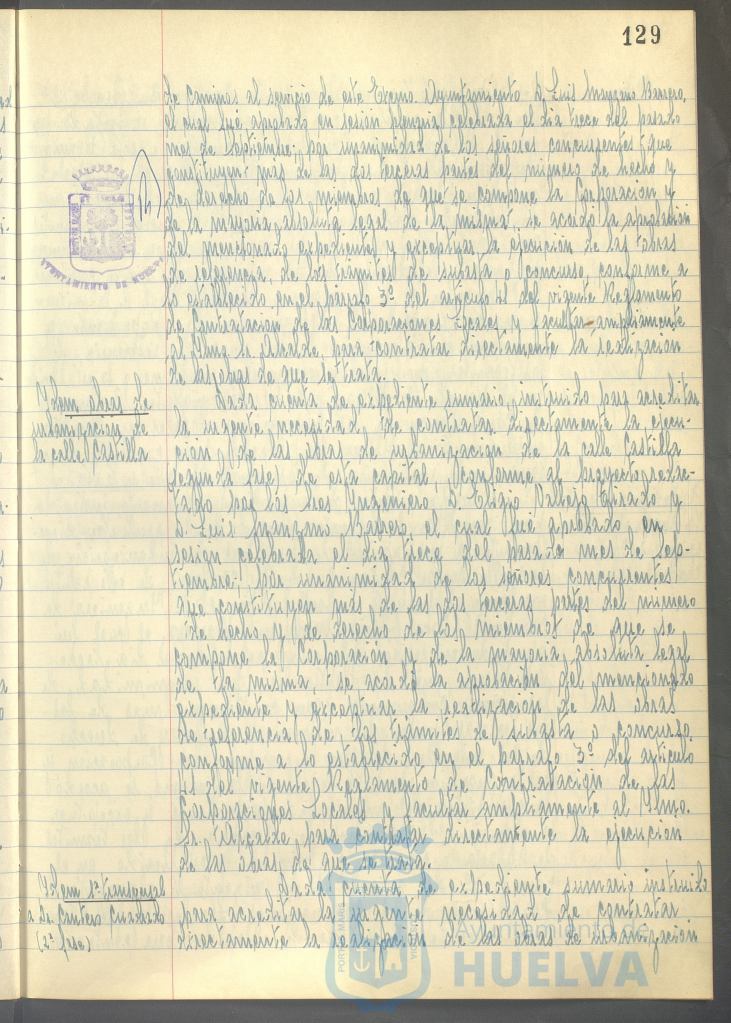 129
de Caminos al servicio de este Excmo. Ayuntamiento D. Luis Manzano Barrero,
el cual fue aprobado en sesión plenaria celebrada el día trece del pasado
mes de Septiembre; por unanimidad de los señores concurrentes que
constituyen más de las dos terceras partes del número de hecho y
de derecho de los miembros de que se compone la Corporación y
de la mayoría absoluta legal de la misma, se acordó la aprobación
del mencionado expediente y exceptuar la ejecución de las obras
de referencia, de los trámites de subasta o concurso, conforme a
lo establecido en el párrafo 3º del artículo 41 del vigente Reglamento
de Contratación de las Corporaciones Locales y facultar ampliamente
al Ilmo. Sr. Alcalde, para contratar directamente la realización
de las obras de que se trata.
AYUNTAMIENTO DE HUELVA
Idem obras de
urbanización de
la calle Castilla
Dada cuenta de expediente sumario, instruido para acreditar
la urgente necesidad de contratar directamente la ejecu-
ción de las obras de urbanización de la calle Castilla
(segunda fase) de esta capital, conforme al proyecto redac-
tado por los Sres Ingeniero, D. Eligio Vallejo y
D. Luis Manzano Barrero, el cual fue aprobado en
sesión celebrada el día trece del pasado mes de Sep-
tiembre, por unanimidad de los señores concurrentes
que constituyen más de las dos terceras partes del número
de hecho y de derecho de los miembros de que se
compone la Corporación y de la mayoría absoluta legal
de la misma, se acordó la aprobación del mencionado
expediente y exceptuar la realización de las obras
de referencia, de los trámites de subasta o concurso,
conforme a lo establecido en el parrafo 3º del artículo
41 del vigente Reglamento de Contratación de las
Corporaciones Locales y facultar ampliamente al Ilmo.
Sr. Alcalde, para contratar directamente la ejecución
de las obras de que se trata.
Idem 1ª transversal
a Dr. Cantero Cuadrado
(2ª fase)
Dada cuenta de expediente sumario instruido
para acreditar la urgente necesidad de contratar
directamente la realización de las obras de urbanización
Ayuntamiento de
HUELVA